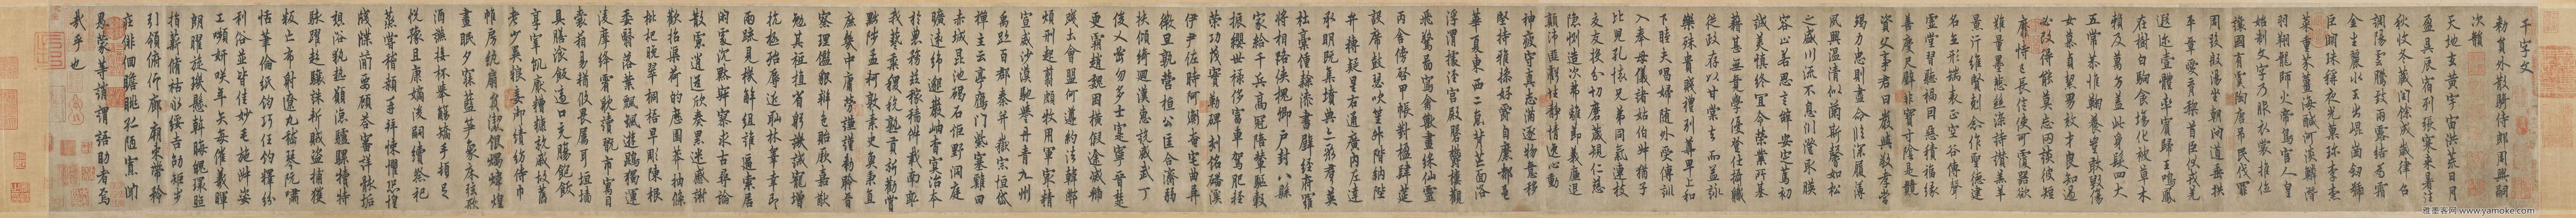 千字文
勑員外散騎侍郎周興嗣
次韻
天地玄黄宇宙洪荒日月
盈昃辰宿列張寒來暑往
秋收冬藏閏餘成歲律吕
調陽雲騰致雨露結爲霜
金生麗水玉出崐崗劒號
巨闕珠稱夜光菓珍李柰
菜重芥薑海鹹河淡鱗潛
羽翔龍師火帝鳥官人皇
始制文字乃服衣裳推位
讓國有虞陶唐弔民伐罪
周發殷湯坐朝問道垂拱
平章愛育黎首臣伏戎羌
遐邇壹體率賓歸王鳴鳳
在樹白駒食場化被草木
賴及萬方蓋此身髮四大
五常恭惟鞠養豈敢毀傷
女慕貞絜男效才良知過
必改得能莫忘罔談彼短
靡恃己長信使可覆器欲
難量墨悲絲染詩讚羔羊
景行維賢剋念作聖德建
名立形端表正空谷傳聲
虛堂習聽禍因惡積福緣
善慶尺璧非寶寸陰是競
資父事君曰嚴與敬孝當
竭力忠則盡命臨深履薄
夙興溫凊似蘭斯馨如松
之盛川流不息淵澄取暎
容止若思言辭安定篤初
誠美慎終宜令榮業所基
藉甚無竟學優登仕攝職
從政存以甘棠去而益詠
樂殊貴賤禮別尊卑上和
下睦夫唱婦隨外受傅訓
入奉母儀諸姑伯叔猶子
比兒孔懷兄弟同氣連枝
交友投分切磨箴規仁慈
隱惻造次弗離節義廉退
顛沛匪虧性靜情逸心動
神疲守真志滿逐物意移
堅持雅操好爵自縻都邑
華夏東西二京背芒面洛
浮渭據涇宮殿盤鬱樓觀
飛驚圖寫禽獸畫綵仙靈
丙舍傍啓甲帳對楹肆筵
設席鼓瑟吹笙升階納陛
弁轉疑星右通廣內左達
承明既集墳典亦聚群英
杜稾鍾隸漆書壁經府羅
將相路俠槐卿戶封八縣
家給千兵高冠陪輦驅轂
振纓世祿侈富車駕肥輕
策功茂實勒碑刻銘磻溪
伊尹佐時阿衡奄宅曲阜
微旦孰營桓公匡合濟弱
扶傾綺迴漢惠說感武丁
俊乂密勿多士寔寧晉楚
更霸趙魏困橫假途滅虢
踐土會盟何遵約法韓弊
煩刑起翦頗牧用軍最精
宣威沙漠馳譽丹青九州
禹跡百郡秦并嶽宗恒岱
禪主云亭鴈門紫塞雞田
赤城昆池碣石鉅野洞庭
曠遠綿邈巖岫杳冥治本
於農務茲稼穡俶載南畝
我藝黍稷稅熟貢新勸賞
黜陟孟軻敦素史魚秉直
庶幾中庸勞謙謹勑聆音
察理鑑貌辯色貽厥嘉猷
勉其祗植省躬譏誡寵增
抗極殆辱近恥林皋幸即
兩疏見機解組誰逼索居
閒處沉默寂寥求古尋論
散慮逍遙欣奏累遣慼謝
歡招渠荷的歷園莽抽條
枇杷晚翠梧桐早彫陳根
委翳落葉飄颻遊鵾獨運
凌摩絳霄耽讀翫市寓目
囊箱易輶攸畏屬耳垣墻
具膳飡飯適口充腸飽飫
享宰飢厭糟糠親戚故舊
老少異糧妾御績紡侍巾
帷房紈扇圓潔銀燭煒煌
晝眠夕寐藍筍象床弦歌
酒讌接杯舉觴矯手頓足
悅豫且康嫡後嗣續祭祀
蒸嘗稽顙再拜悚懼恐惶
牋牒簡要顧答審詳骸垢
想浴執熱願涼驢騾犢特
駭躍超驤誅斬賊盜捕獲
叛亡布射遼丸嵇琴阮嘯
恬筆倫紙鈞巧任釣釋紛
利俗並皆佳妙毛施淑姿
工顰妍笑年矢每催羲暉
朗曜旋璣懸斡晦魄環照
指薪修祜永綏吉劭矩步
引領俯仰廊廟束帶矜
莊徘徊瞻眺孤陋寡聞
愚蒙等誚謂語助者焉
哉乎也
雅墨客网 www.yamoke.com